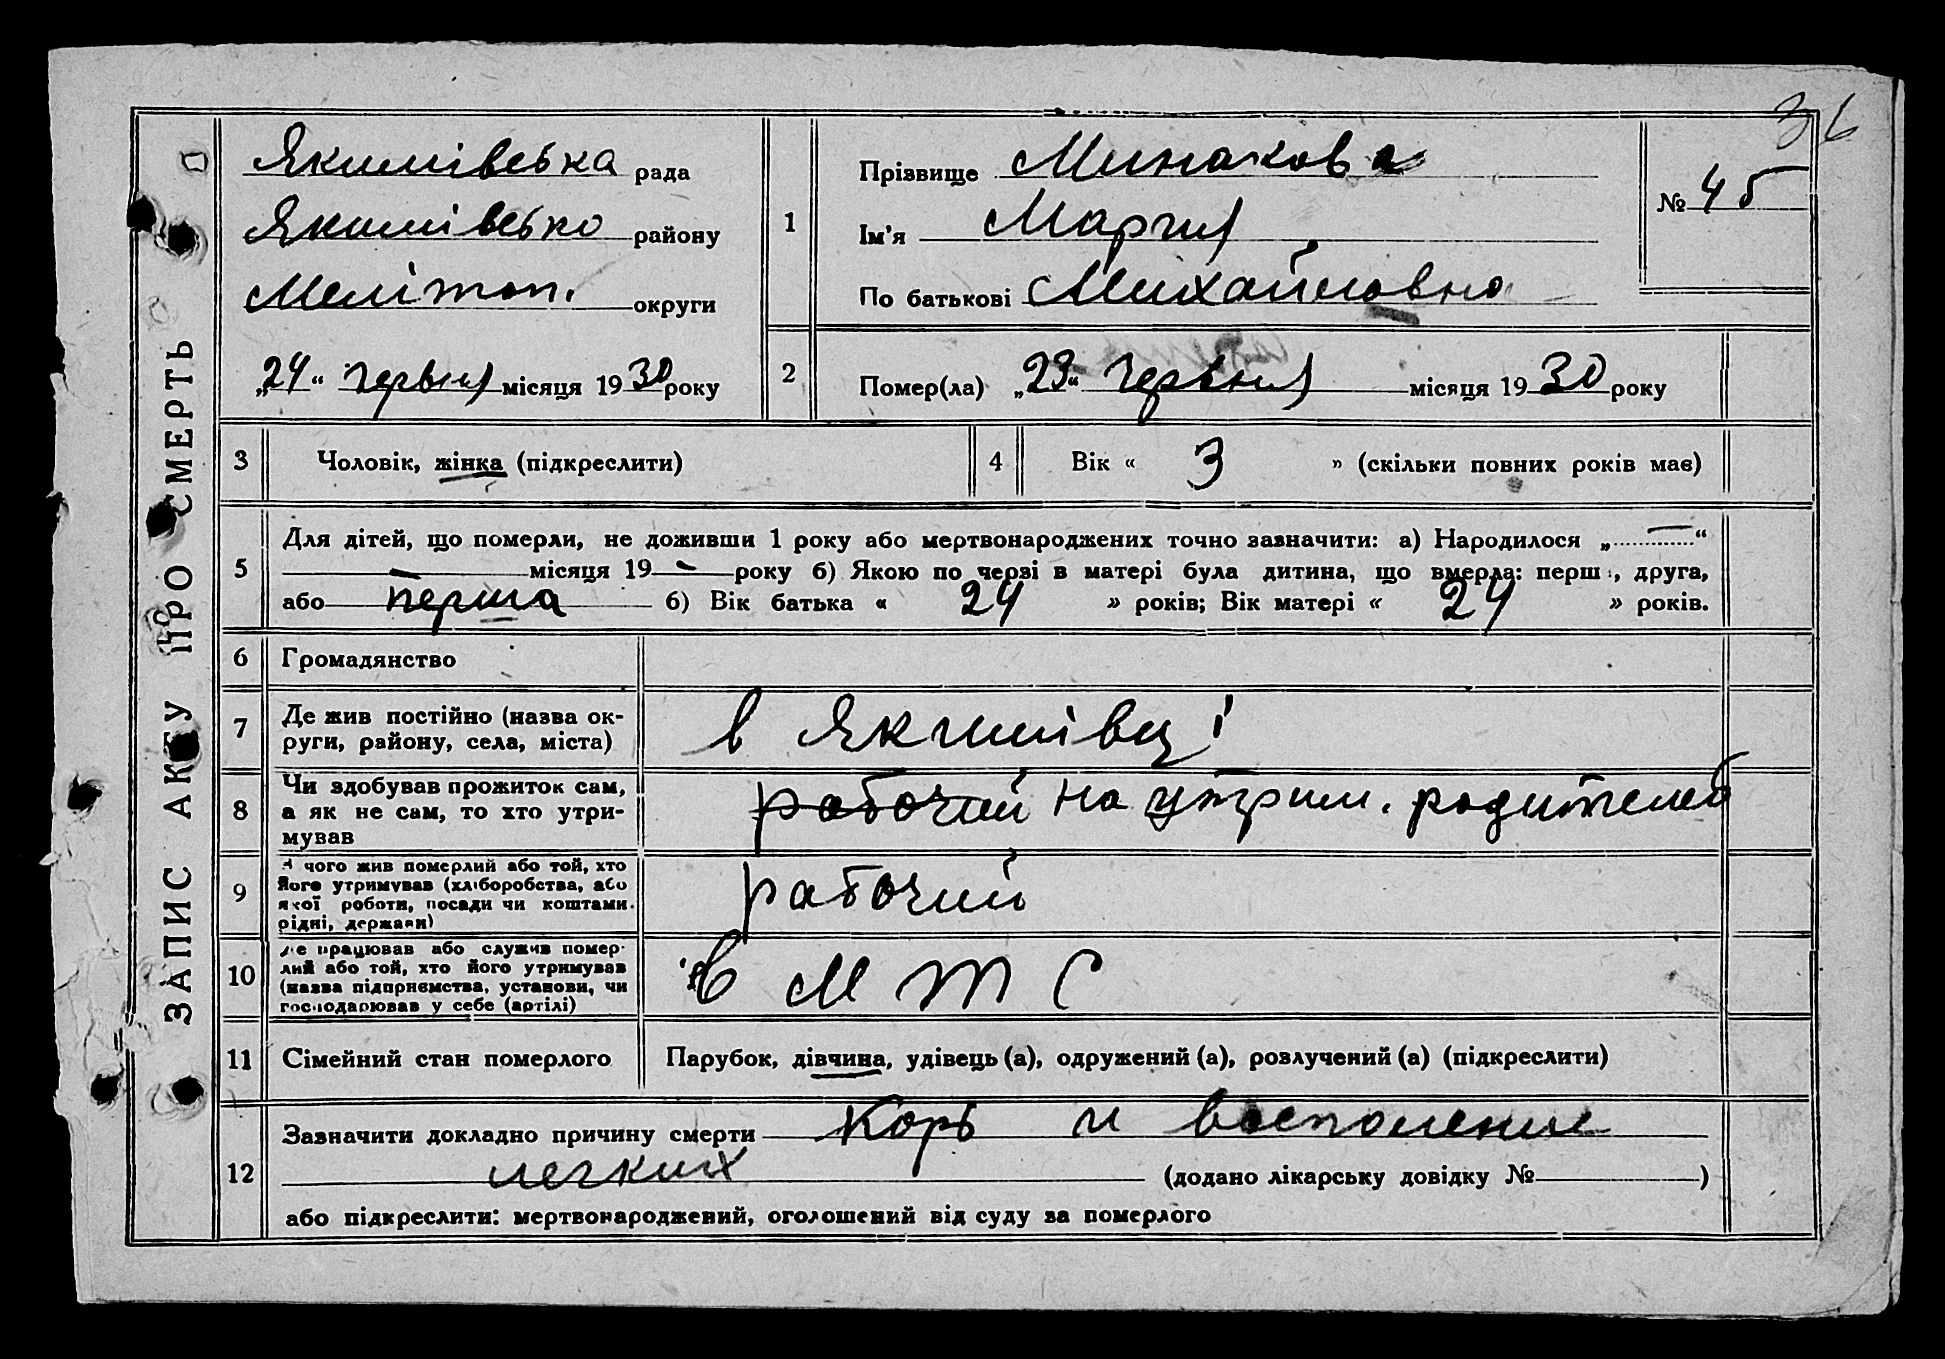 36
ЗАПИС АКТУ ПРО СМЕРТЬ
Якимівська рада
Якимівсько району
Мелітоп. округи
„24“ червня місяця 1930 року
1
Прізвище Минакова
Ім'я Мария
По батькові Михайловна
№ 45
2
Помер(ла) „23“ червня місяця 1930 року
3
Чоловік, жінка (підкреслити)
4
Вік « 3 » (скільки повних років має)
5
Для дітей, що померли, не доживши 1 року або мертвонароджених точно зазначити: а) Народилося „ — “
— місяця 19 — року б) Якою по черзі в матері була дитина, що вмерла: перша, друга,
або перша б) Вік батька « 24 » років; Вік матері « 24 » років.
6
Громадянство
7
Де жив постійно (назва ок-
руги, району, села, міста)
в Якимівці
8
Чи здобував прожиток сам,
а як не сам, то хто утри-
мував
рабочий на утрим. родителей
9
З чого жив померлий або той, хто
його утримував (хліборобства, або
якої роботи, посади чи коштами
рідні, держави)
рабочий
10
Де працював або служив помер-
лий або той, хто його утримував
(назва підприємства, установи, чи
господарював у себе (артілі)
в М Т С
11
Сімейний стан померлого
Парубок, дівчина, удівець (а), одружений (а), розлучений (а) (підкреслити)
12
Зазначити докладно причину смерти Корь и восполение
легких (додано лікарську довідку № )
або підкреслити: мертвонароджений, оголошений від суду за померлого